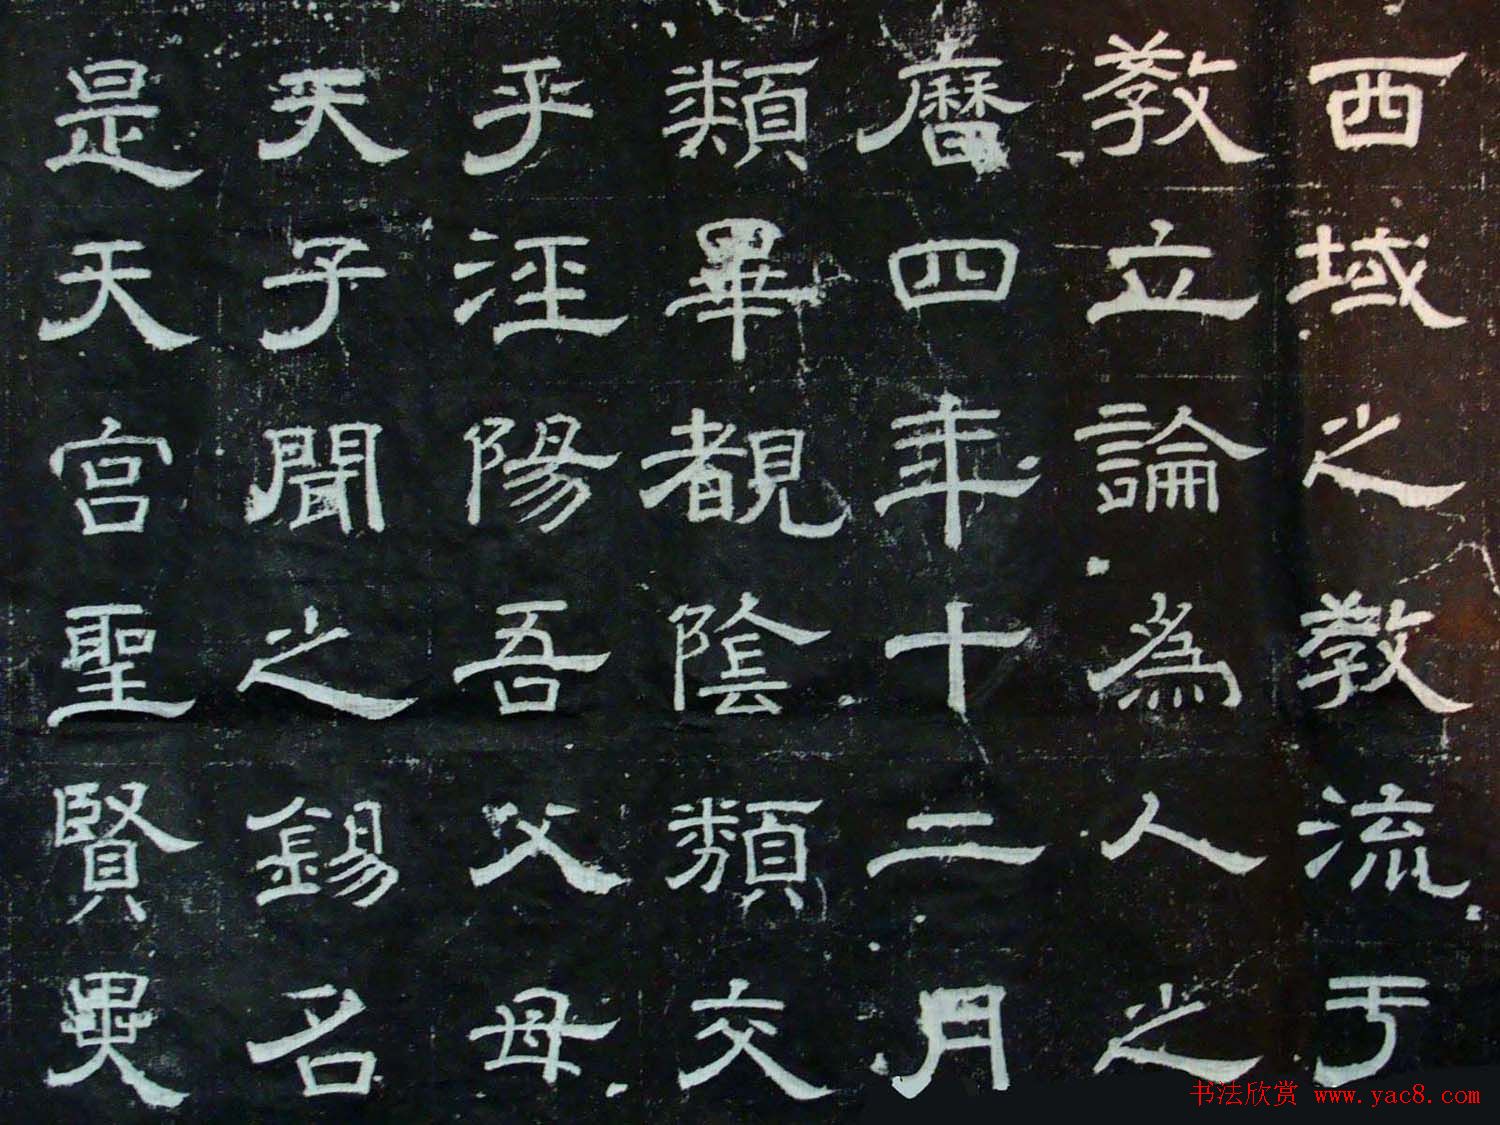 西域之教流于
教立論為人之
曆四年十二月
類畢覩陰類交
乎涇陽吾父母
天子聞之錫名
是天宮聖賢異
书法欣赏 www.yac8.com